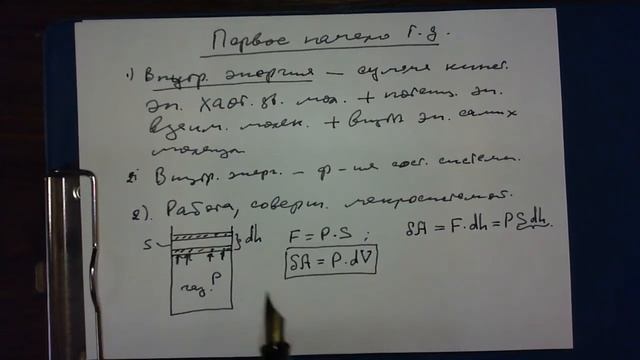 Первое начало т.д.
1) Внутр. энергия – сумма кинет.
эн. хаот. дв. мол. + потенц. эн.
взаим. молек. + внутр эн. самих
молекул
2) Внутр. энерг. – ф-ия сост. системы.
2). Работа, соверш. макросистемой.
S dh F = P·S ; δA = F·dh = PSdh
газ P δA = P·dV